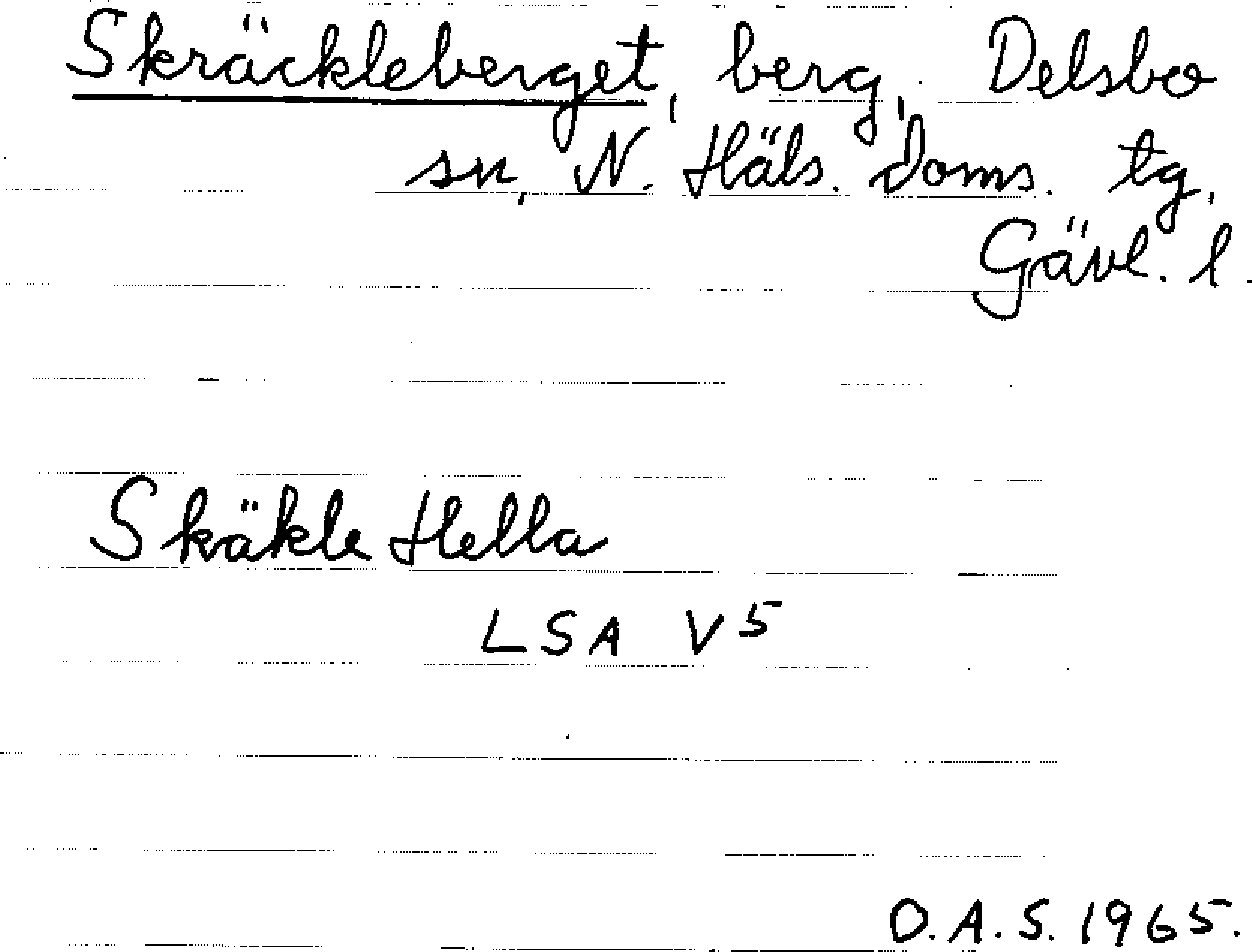 Skräckleberget, berg, Delsbo
sn, N. Häls. doms. tg,
Gävl. l.
Skäkle Hella
LSA V5
O.A.S. 1965.